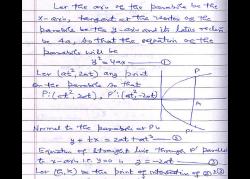 Let the axis of the parabola be the
x-axis, tangent at the vertex of the
parabola be the y-axis and its latus rectum
be 4a, so that the equation of the
parabola will be
y² = 4ax — ①
Let (at², 2at) any point
on the parabola so that
P : (at², 2at), P' : (at², -2at)
P
A
P'
Normal to the parabola at P is
y + tx = 2at + at³ — ②
Equation of straight line through P' parallel
to x-axis i.e. y = 0 is y = -2at — ③
Let (h, k) be the point of intersection of ② & ③